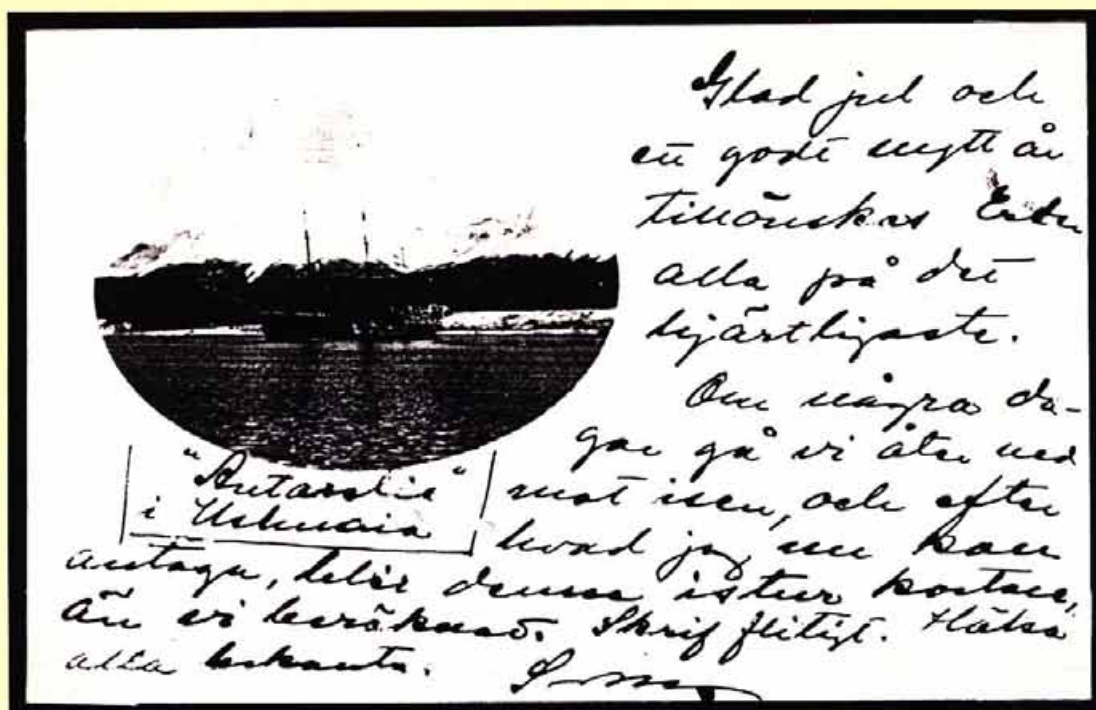 Glad jul och
ett godt nytt år
tillönskas Eder
alla på det
hjärtligaste.
Om några da-
gar gå vi åter ned
mot isen, och efter
hvad jag nu kan
antaga, blir denna istur kortare,
än vi beräknade. Skrif flitigt. Hälsa
alla bekanta.
"Antarctic"
i Ushuaia